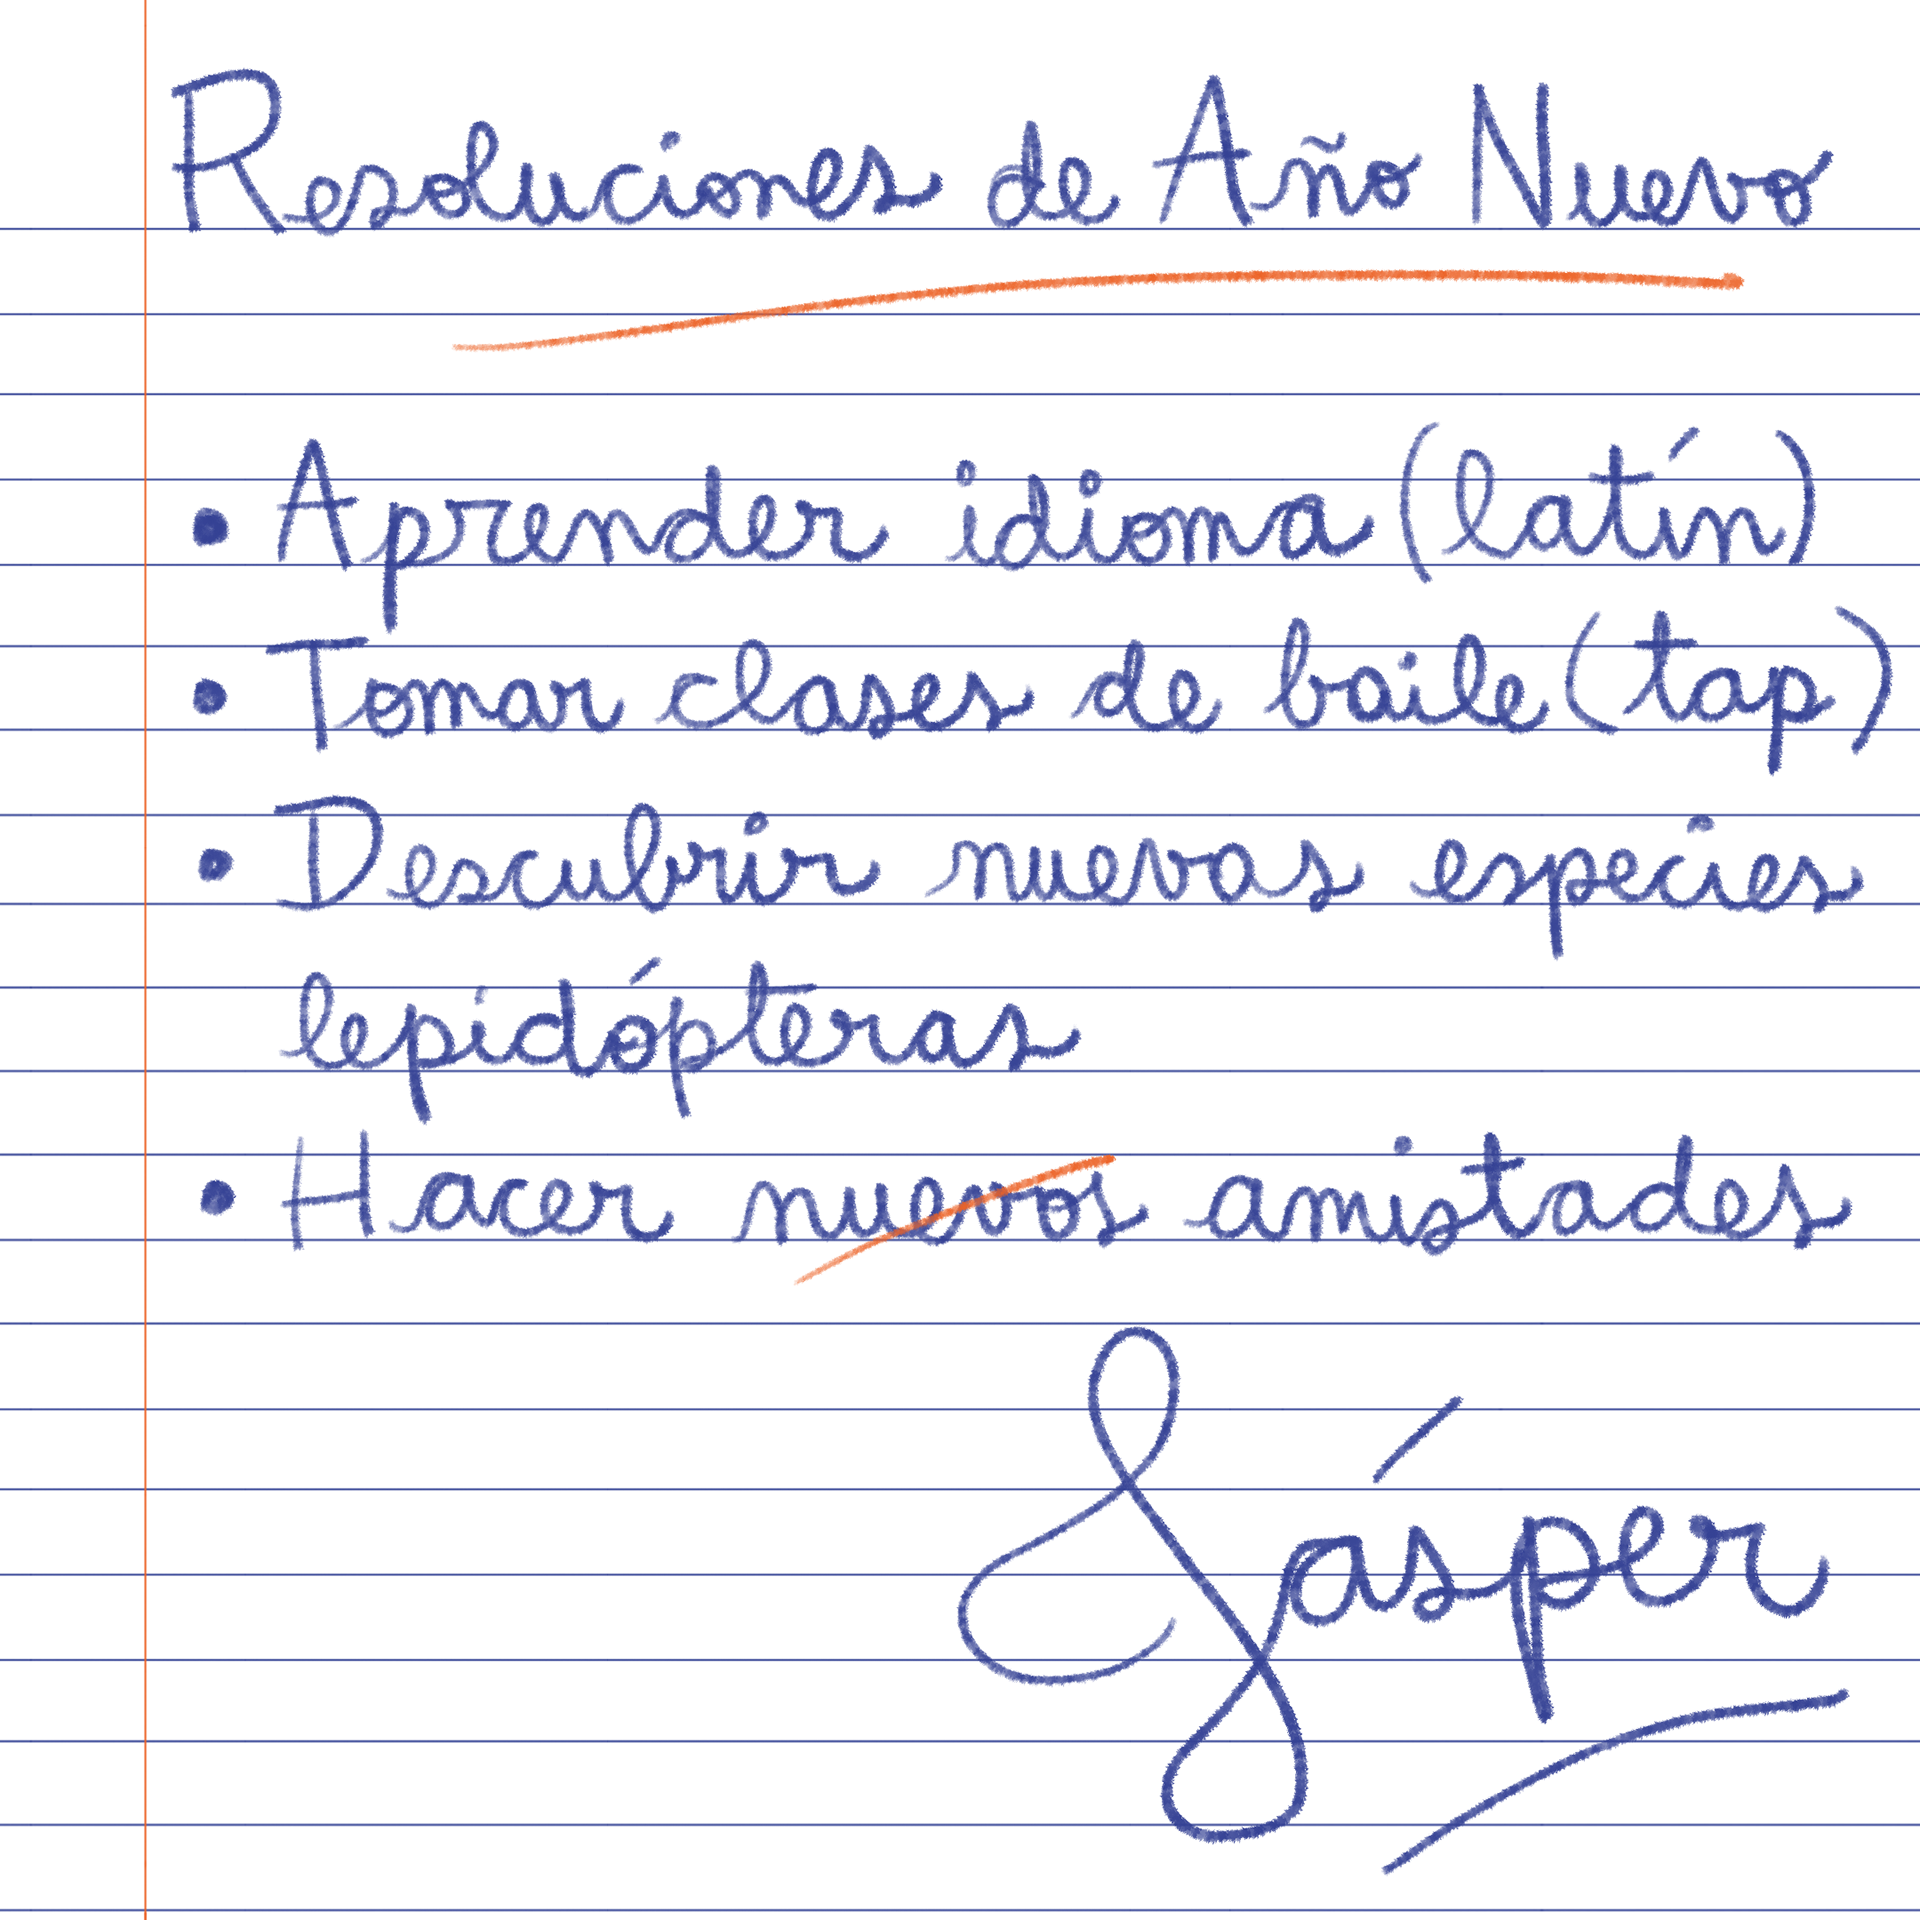 Resoluciones de Año Nuevo
• Aprender idioma (latín)
• Tomar clases de baile (tap)
• Descubrir nuevas especies
lepidópteras
• Hacer nuevos amistades
Jásper